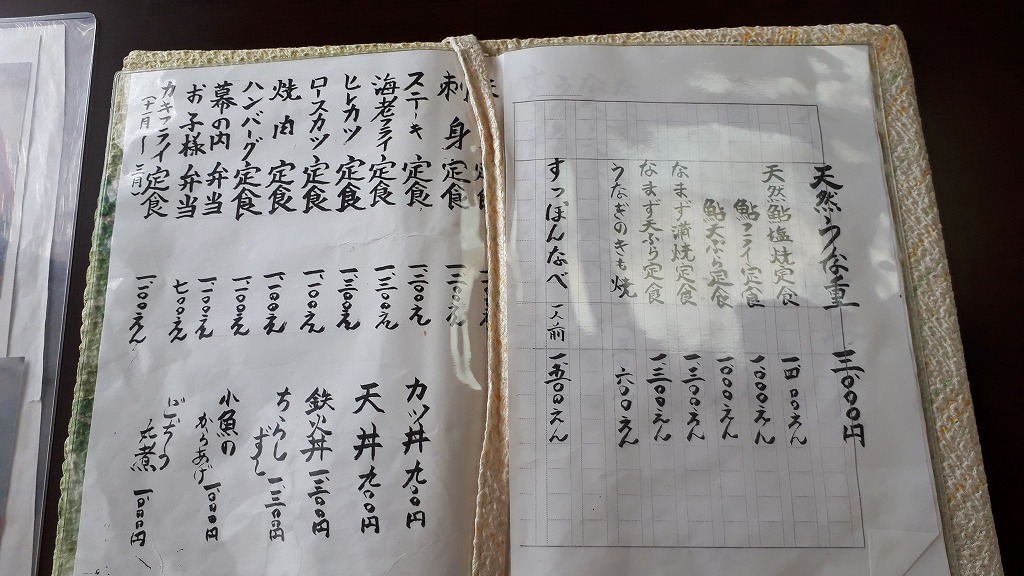 天然うな重 三〇〇〇円
天然鮎塩焼定食 一四〇〇えん
鮎フライ定食 一〇〇〇えん
鮎天ぷら定食 一〇〇〇えん
なまず蒲焼定食 一三〇〇えん
なまず天ぷら定食 一三〇〇えん
うなぎのきも焼 六〇〇えん
すっぽんなべ 一人前 一五〇〇えん
刺身定食 一三〇〇えん
ステーキ定食 一二〇〇えん
海老フライ定食 一三〇〇えん
ヒレカツ定食 一三〇〇えん
ロースカツ定食 一、〇〇〇えん
焼肉定食 一、〇〇〇えん
ハンバーグ定食 一、〇〇〇えん
幕の内弁当 一、〇〇〇えん
お子様弁当 七〇〇えん
カキフライ定食 一、二〇〇えん
（十一月〜二月）
カツ丼 九〇〇円
天丼 九〇〇円
鉄火丼 一、三〇〇円
ちらしずし 一、三〇〇円
小魚のからあげ 一、〇〇〇円
どぜうの丸煮 一、〇〇〇円